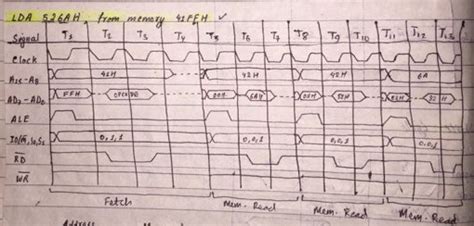 LDA 526AH from memory 41FFH ✓
Signal T1 T2 T3 T4 T5 T6 T7 T8 T9 T10 T11 T12 T13
Clock
A15-A8 41H 42H 42H 6A
AD7-AD0 FFH opcode 00H 6AH 01H 52H
ALE
IO/M̅,S0,S1 0,1,1 0,0,1 0,0,1 0,0,1
R̅D̅
W̅R̅
Fetch Mem. Read Mem. Read Mem. Read